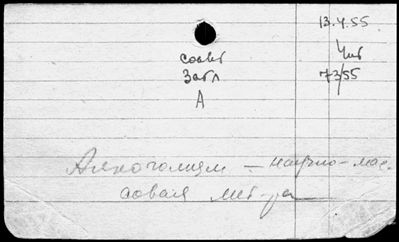 13.4.55
Чит
73/55
Загл
А
Алкоголизм – научно-мас-
совая лит-ра